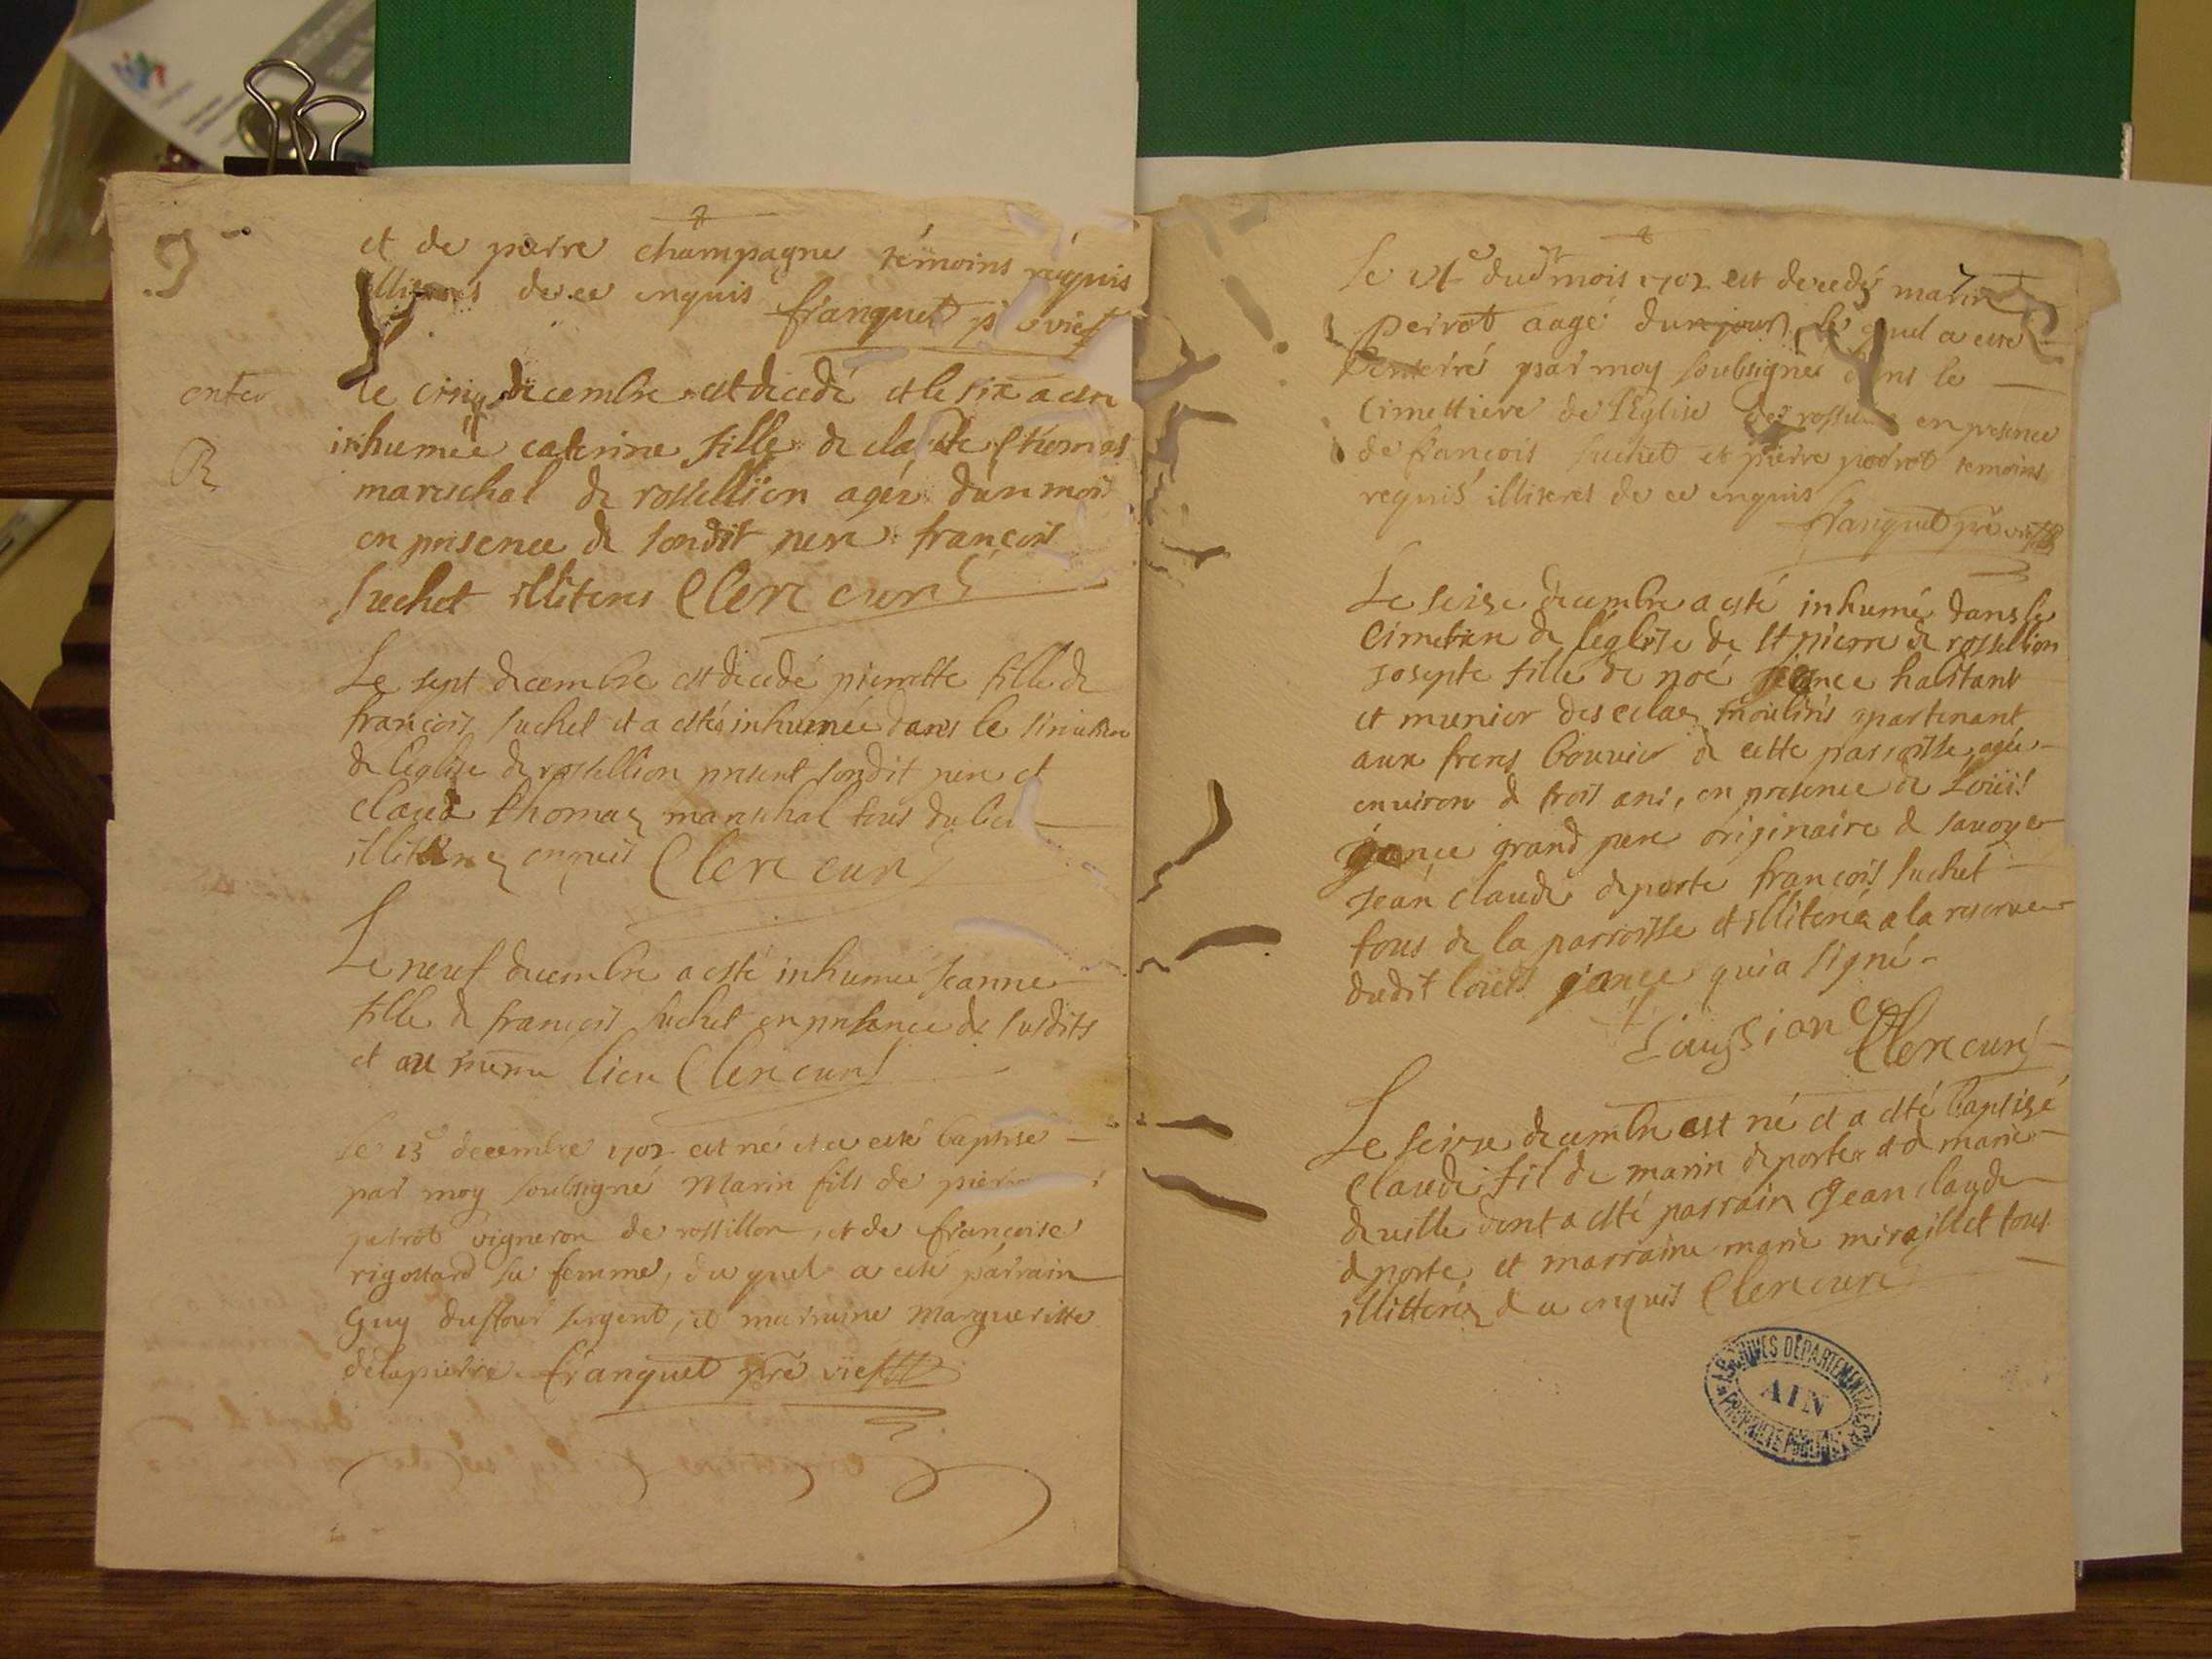 et de pierre champagne témoins requis
illiteres de ce enquis franquet
enter
R
le cinq decembre est decedé et le six a esté
inhumée caterine fille de claude thomas
mareschal de rossellion agée d'un mois
en presence de sondit pere françois
suchet illiteres Clerc curé
Le sept decembre est decedé pierrette fille de
françois suchet et a estée inhumée dans le simetiere
de l'eglise de rossellion present sondit pere et
claude thomas mareschal tous du lieu
illiteres enquis Clerc curé
Le neuf decembre a esté inhumee Jeanne
fille de françois suchet en presence de susdits
et au mesme lieu Clerc curé
Le 13e decembre 1702 est né et a esté baptisé
par moy soubsigné Marin fils de pierre
petrot vigneron de rossillon, et de françoise
rigottard sa femme, du quel a esté parrain
Guy dufour sergent, et marraine Margueritte
delapierre franquet pre vic
Le 14e dud mois 1702 est decedé marin
perrot aagé d'un jour, le quel a esté
enterré par moy soubsigné dans le
Cimettiere de l'Eglise de en presence
de françois suchet et pierre temoins
requis illiteres de ce enquis
franquet pre vic
Le seise decembre a esté inhumé dans le
Cimetiere de l'église de st pierre de rossellion
josepte fille de noé jance habitant
et munier des moulins apartenant
aux freres bouvier de cette parroisse, agée
environ de trois ans, en presence de Loüis
jance grand pere originaire de savoye
Jean claude deporte françois suchet
tous de la parroisse et illiteres a la reserve
dudit loüis jance qui a signé
Clerc curé
Le seize decembre est né et a esté baptisé
Claude fil de marin deporte et de marie
deville dont a esté parrain Jean claude
deporte et marraine marie miraillet tous
illitteres de ce enquis Clerc curé
ARCHIVES DEPARTEMENTALES
AIN
PROPRIETE PUBLIQUE